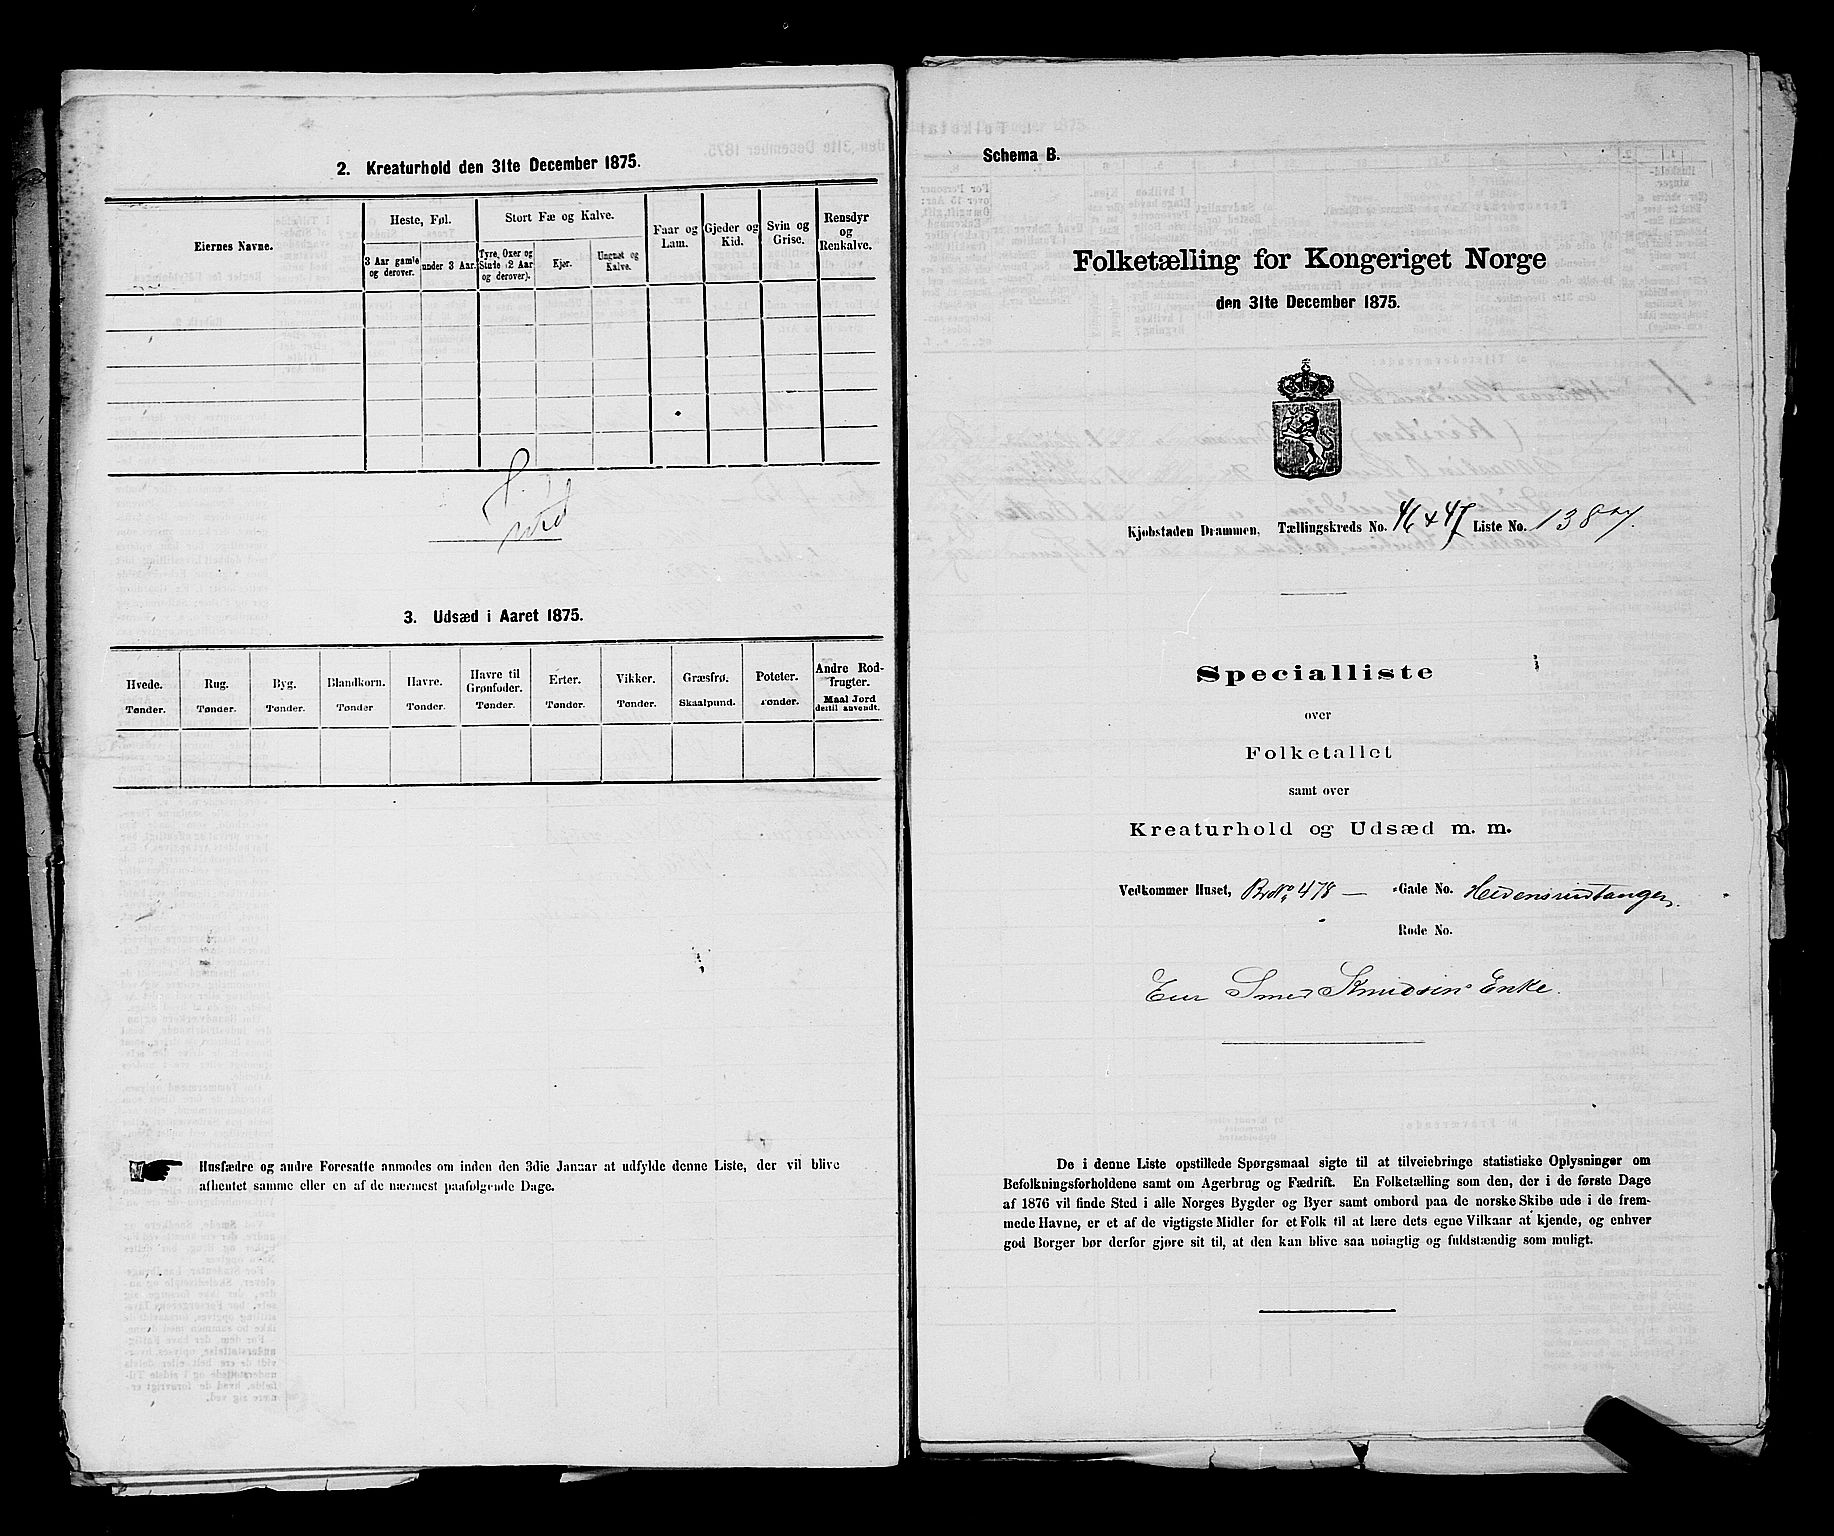 2. Kreaturhold den 31te December 1875.
Eiernes Navne.
Heste, Føl.
3 Aar gamle og derover.
under 3 Aar.
Stort Fæ og Kalve.
Tyre, Oxer og Stude (2 Aar og derover).
Kjør.
Ungnøt og Kalve.
Faar og Lam.
Gjeder og Kid.
Svin og Grise.
Rensdyr og Renkalve.
3. Udsæd i Aaret 1875.
Hvede. Tønder.
Rug. Tønder.
Byg. Tønder.
Blandkorn. Tønder
Havre. Tønder.
Havre til Grønfoder. Tønder.
Erter. Tønder.
Vikker. Tønder.
Græsfrø. Skaalpund.
Poteter. Tønder.
Andre Rodfrugter. Maal Jord dertil anvendt.
Husfædre og andre Foresatte anmodes om inden den 3die Januar at udfylde denne Liste, der vil blive
afhentet samme eller en af de nærmest paafølgende Dage.
Schema B.
Folketælling for Kongeriget Norge
den 31te December 1875.
Kjøbstaden Drammen, Tællingskreds No. 46 & 47 Liste No. 138
Specialliste
over
Folketallet
samt over
Kreaturhold og Udsæd m. m.
Vedkommer Huset, Br No 478 — Gade No.
Rode No.
Knudsens Enke.
De i denne Liste opstillede Spørgsmaal sigte til at tilveiebringe statistiske Oplysninger om
Befolkningsforholdene samt om Agerbrug og Fædrift. En Folketælling som den, der i de første Dage
af 1876 vil finde Sted i alle Norges Bygder og Byer samt ombord paa de norske Skibe ude i de frem-
mede Havne, er et af de vigtigste Midler for et Folk til at lære dets egne Vilkaar at kjende, og enhver
god Borger bør derfor gjøre sit til, at den kan blive saa nøiagtig og fuldstændig som muligt.